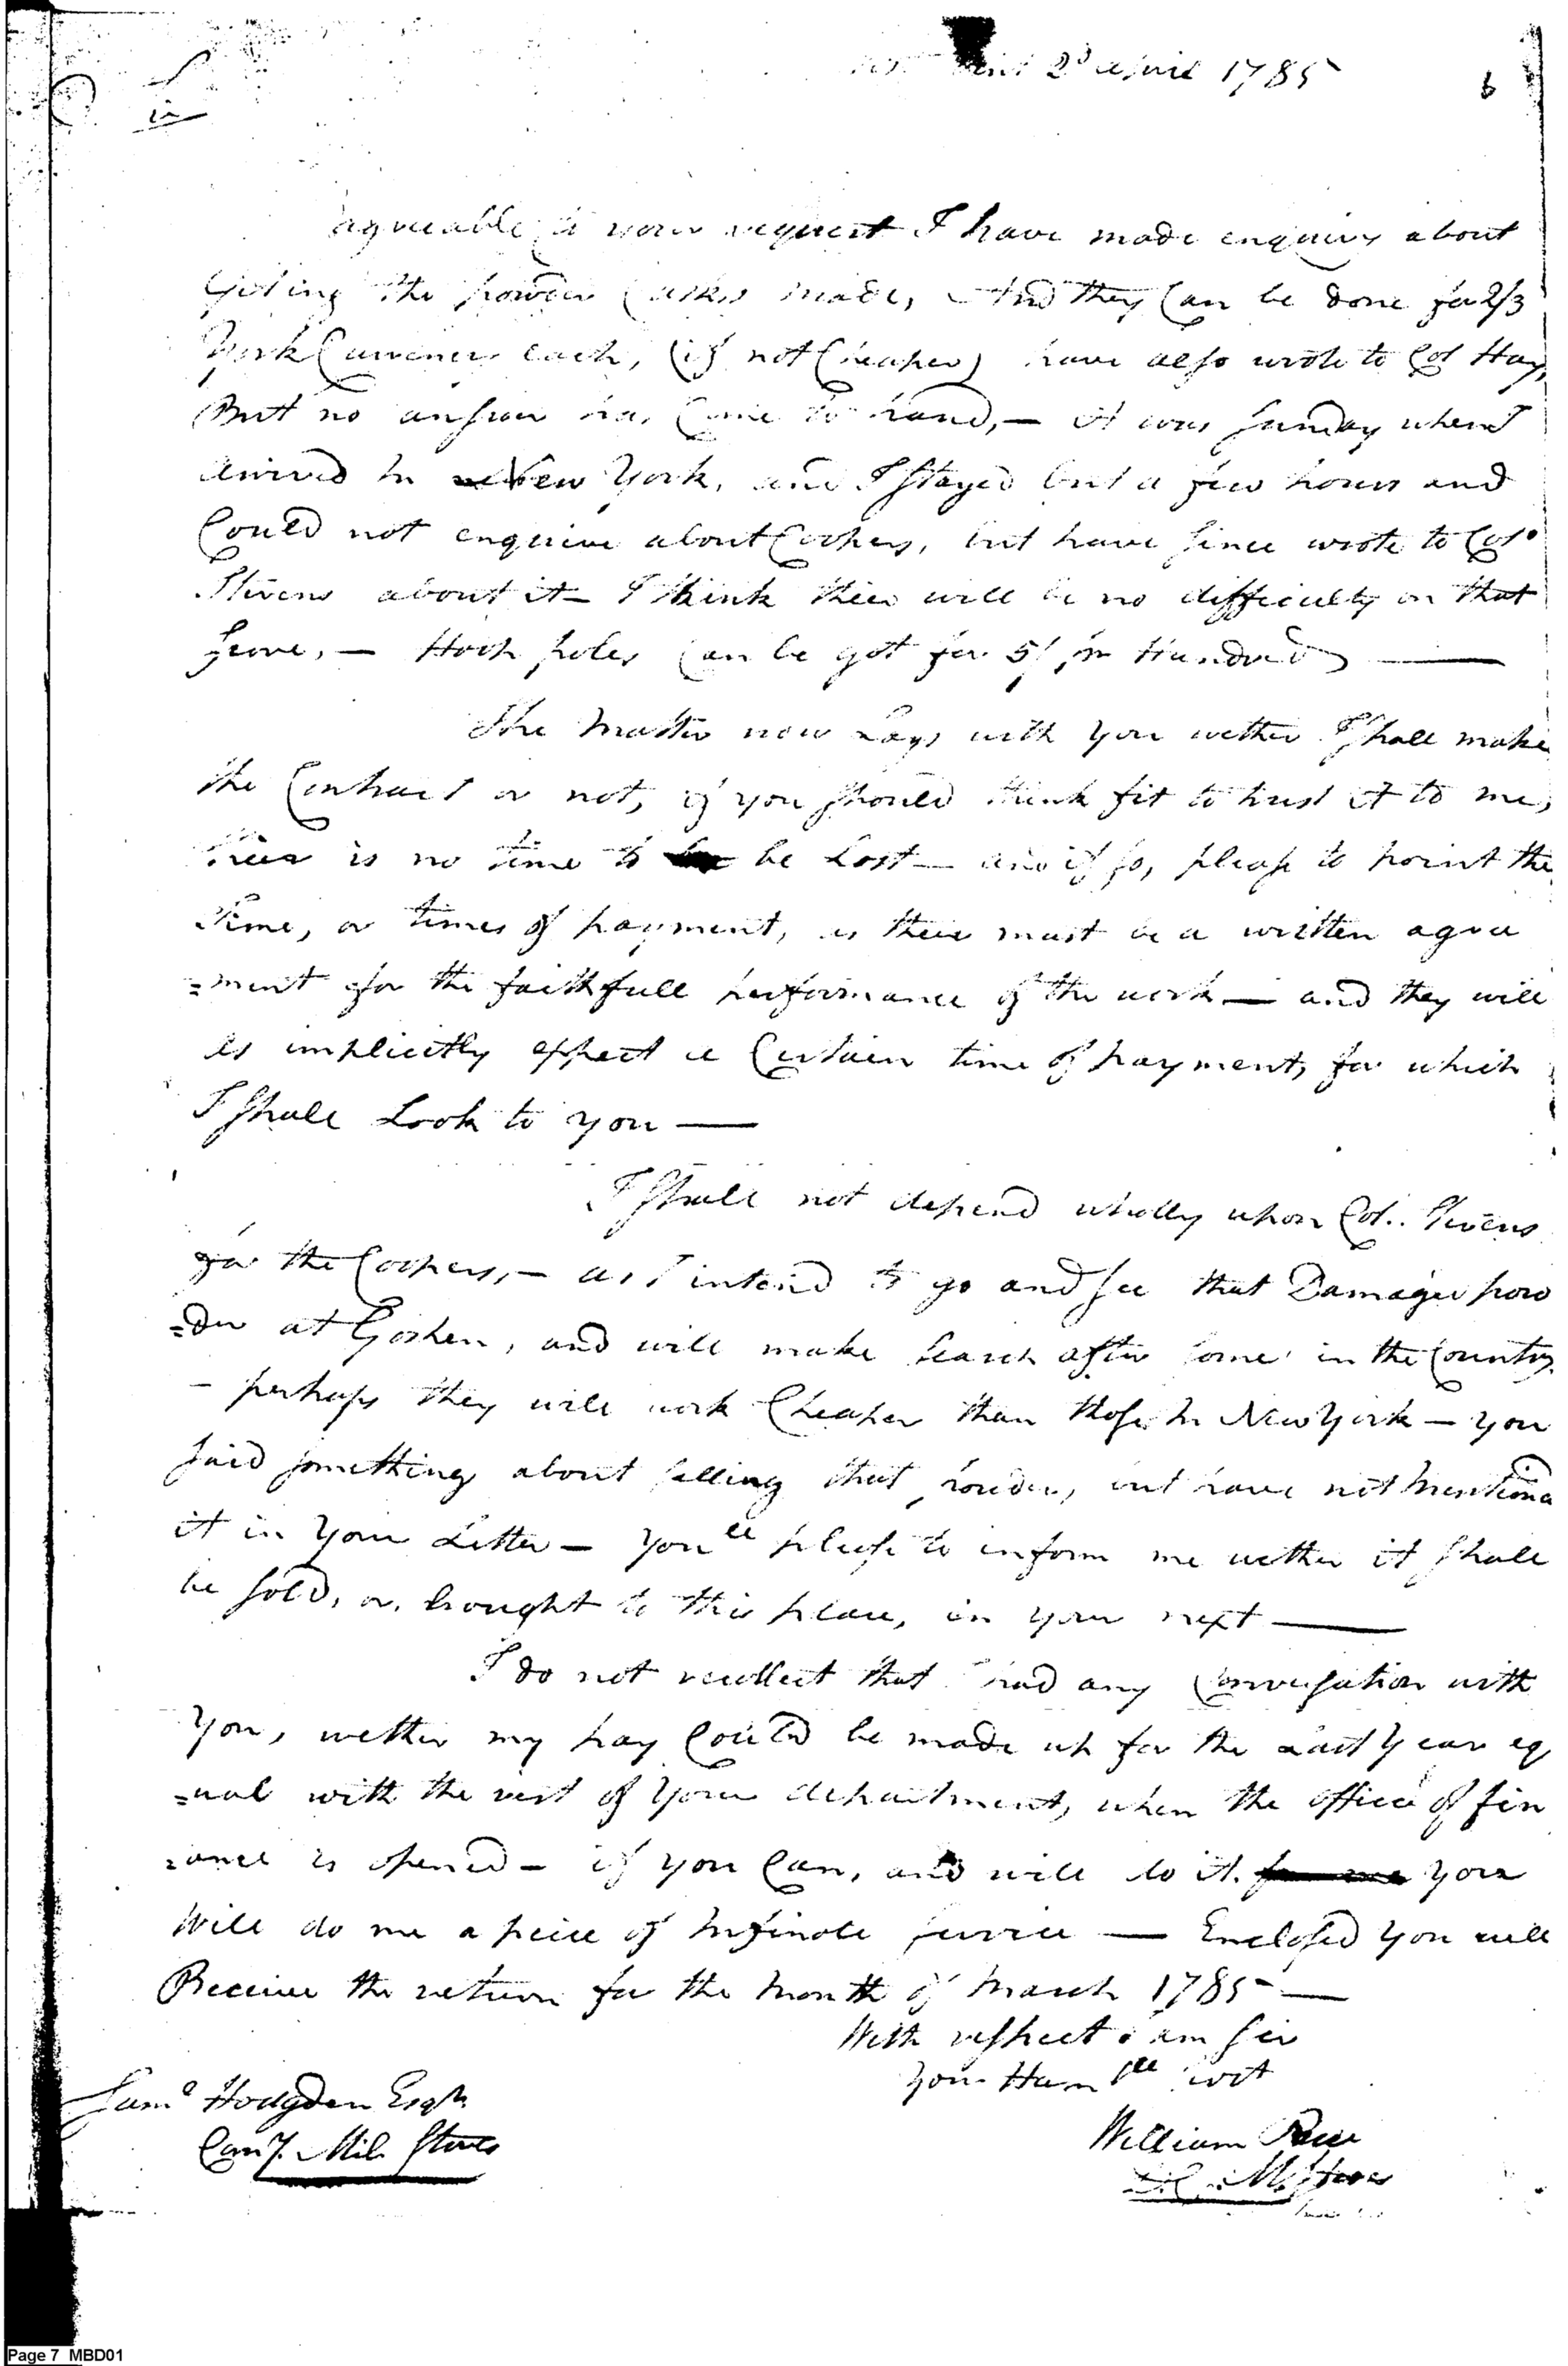 2d April 1785
6
Sir
agreeable to your request I have made enquiry about
Geting the powder Casks made, And they Can be done for 2/3
York Currency each, (if not Cheaper) have also wrote to Col Hay,
But no answer has Come to hand, — it was Sunday when I
arived in New York, and I Stayed but a few hours and
Could not enquire about Coopers, but have Since wrote to Colo
Stevens about it — I think there will be no difficulty on that
Score, — Hoop poles Can be got for 5/ pr Hundred —
The Matter now Lays with you wether I Shall make
the Contract or not, if you Should think fit to trust it to me,
there is no time to be Lost — and if so, please to point the
Time, or times of payment, as there must be a written agree
=ment for the faithfull performance of the work — and they will
as implicitly expect a Certain time of payment, for which
I Shall Look to you —
I Shall not depend wholly upon Col.. Stevens
for the Coopers, — as I intend to go and See that Damaged pow
=der at Goshen, and will make Search after Some in the Country
— perhaps they will work Cheaper than those in New York — you
Said something about Selling that powder, but have not mentiond
it in Your Letter — you'll please to inform me wether it Shall
be Sold, or brought to this place, in your next —
I do not recollect that I had any Conversation with
You, wether my pay Could be made up for the Last Year eq
=ual with the rest of Your department, when the office of fin
=ance is opened — if you Can, and will do it. you
Will do me a peice of Infinate Service — Enclosed you will
Receive the return for the Month of March 1785 —
With respect I am Sir
Your Humble Servt
Saml Hodgdon Esqr
Comy. Mil. Stores
William
M. Stores
Page 7 MBD01